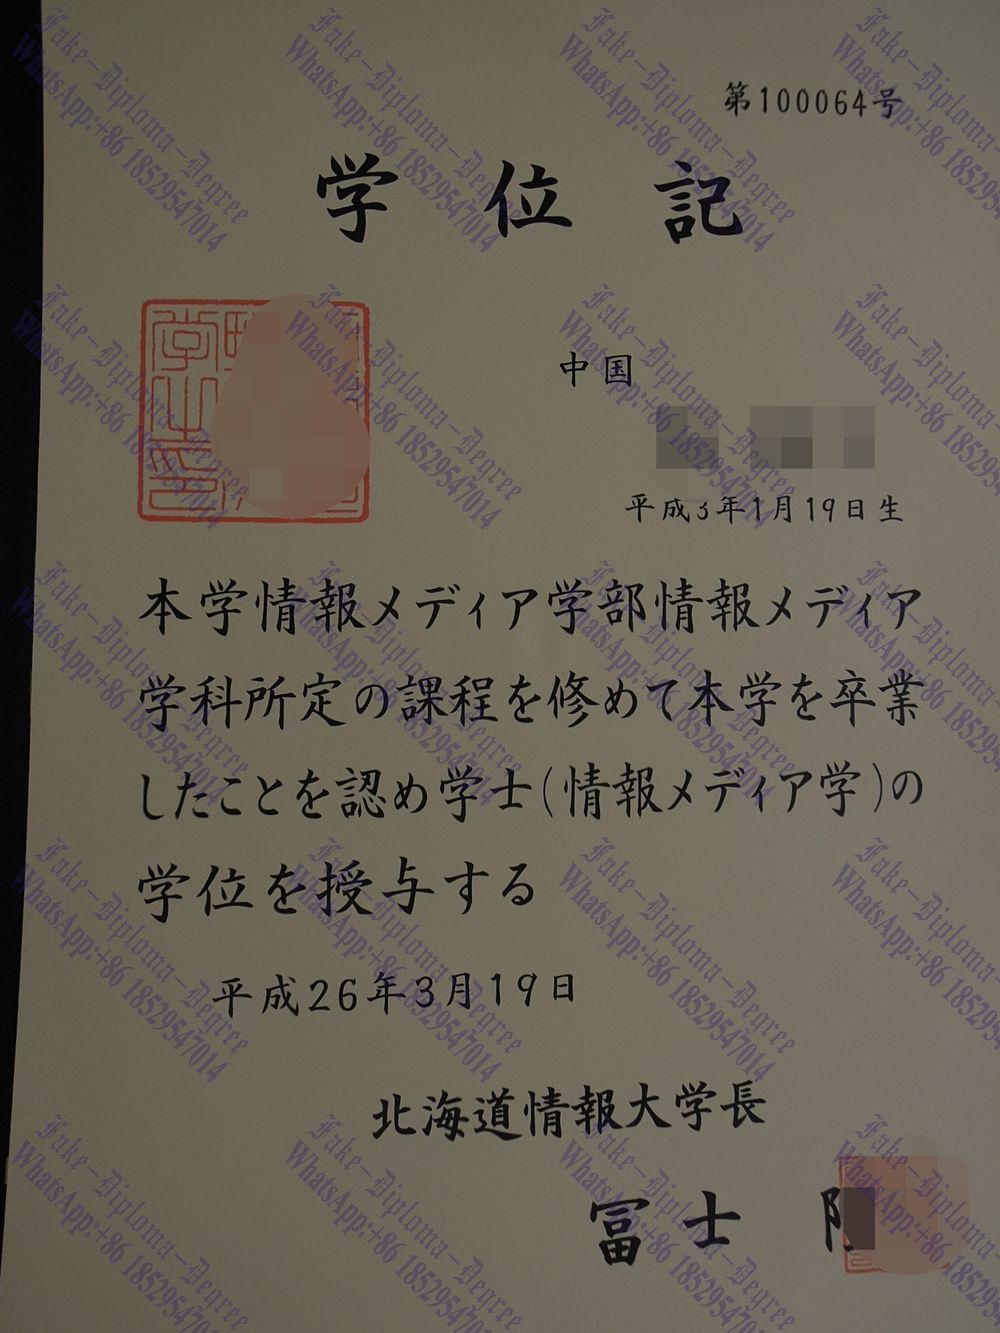 第100064号
学位記
中国
平成3年1月19日生
本学情報メディア学部情報メディア
学科所定の課程を修めて本学を卒業
したことを認め学士(情報メディア学)の
学位を授与する
平成26年3月19日
北海道情報大学長
冨士
Fake-Diploma-Degree
WhatsApp:+86 18529547014